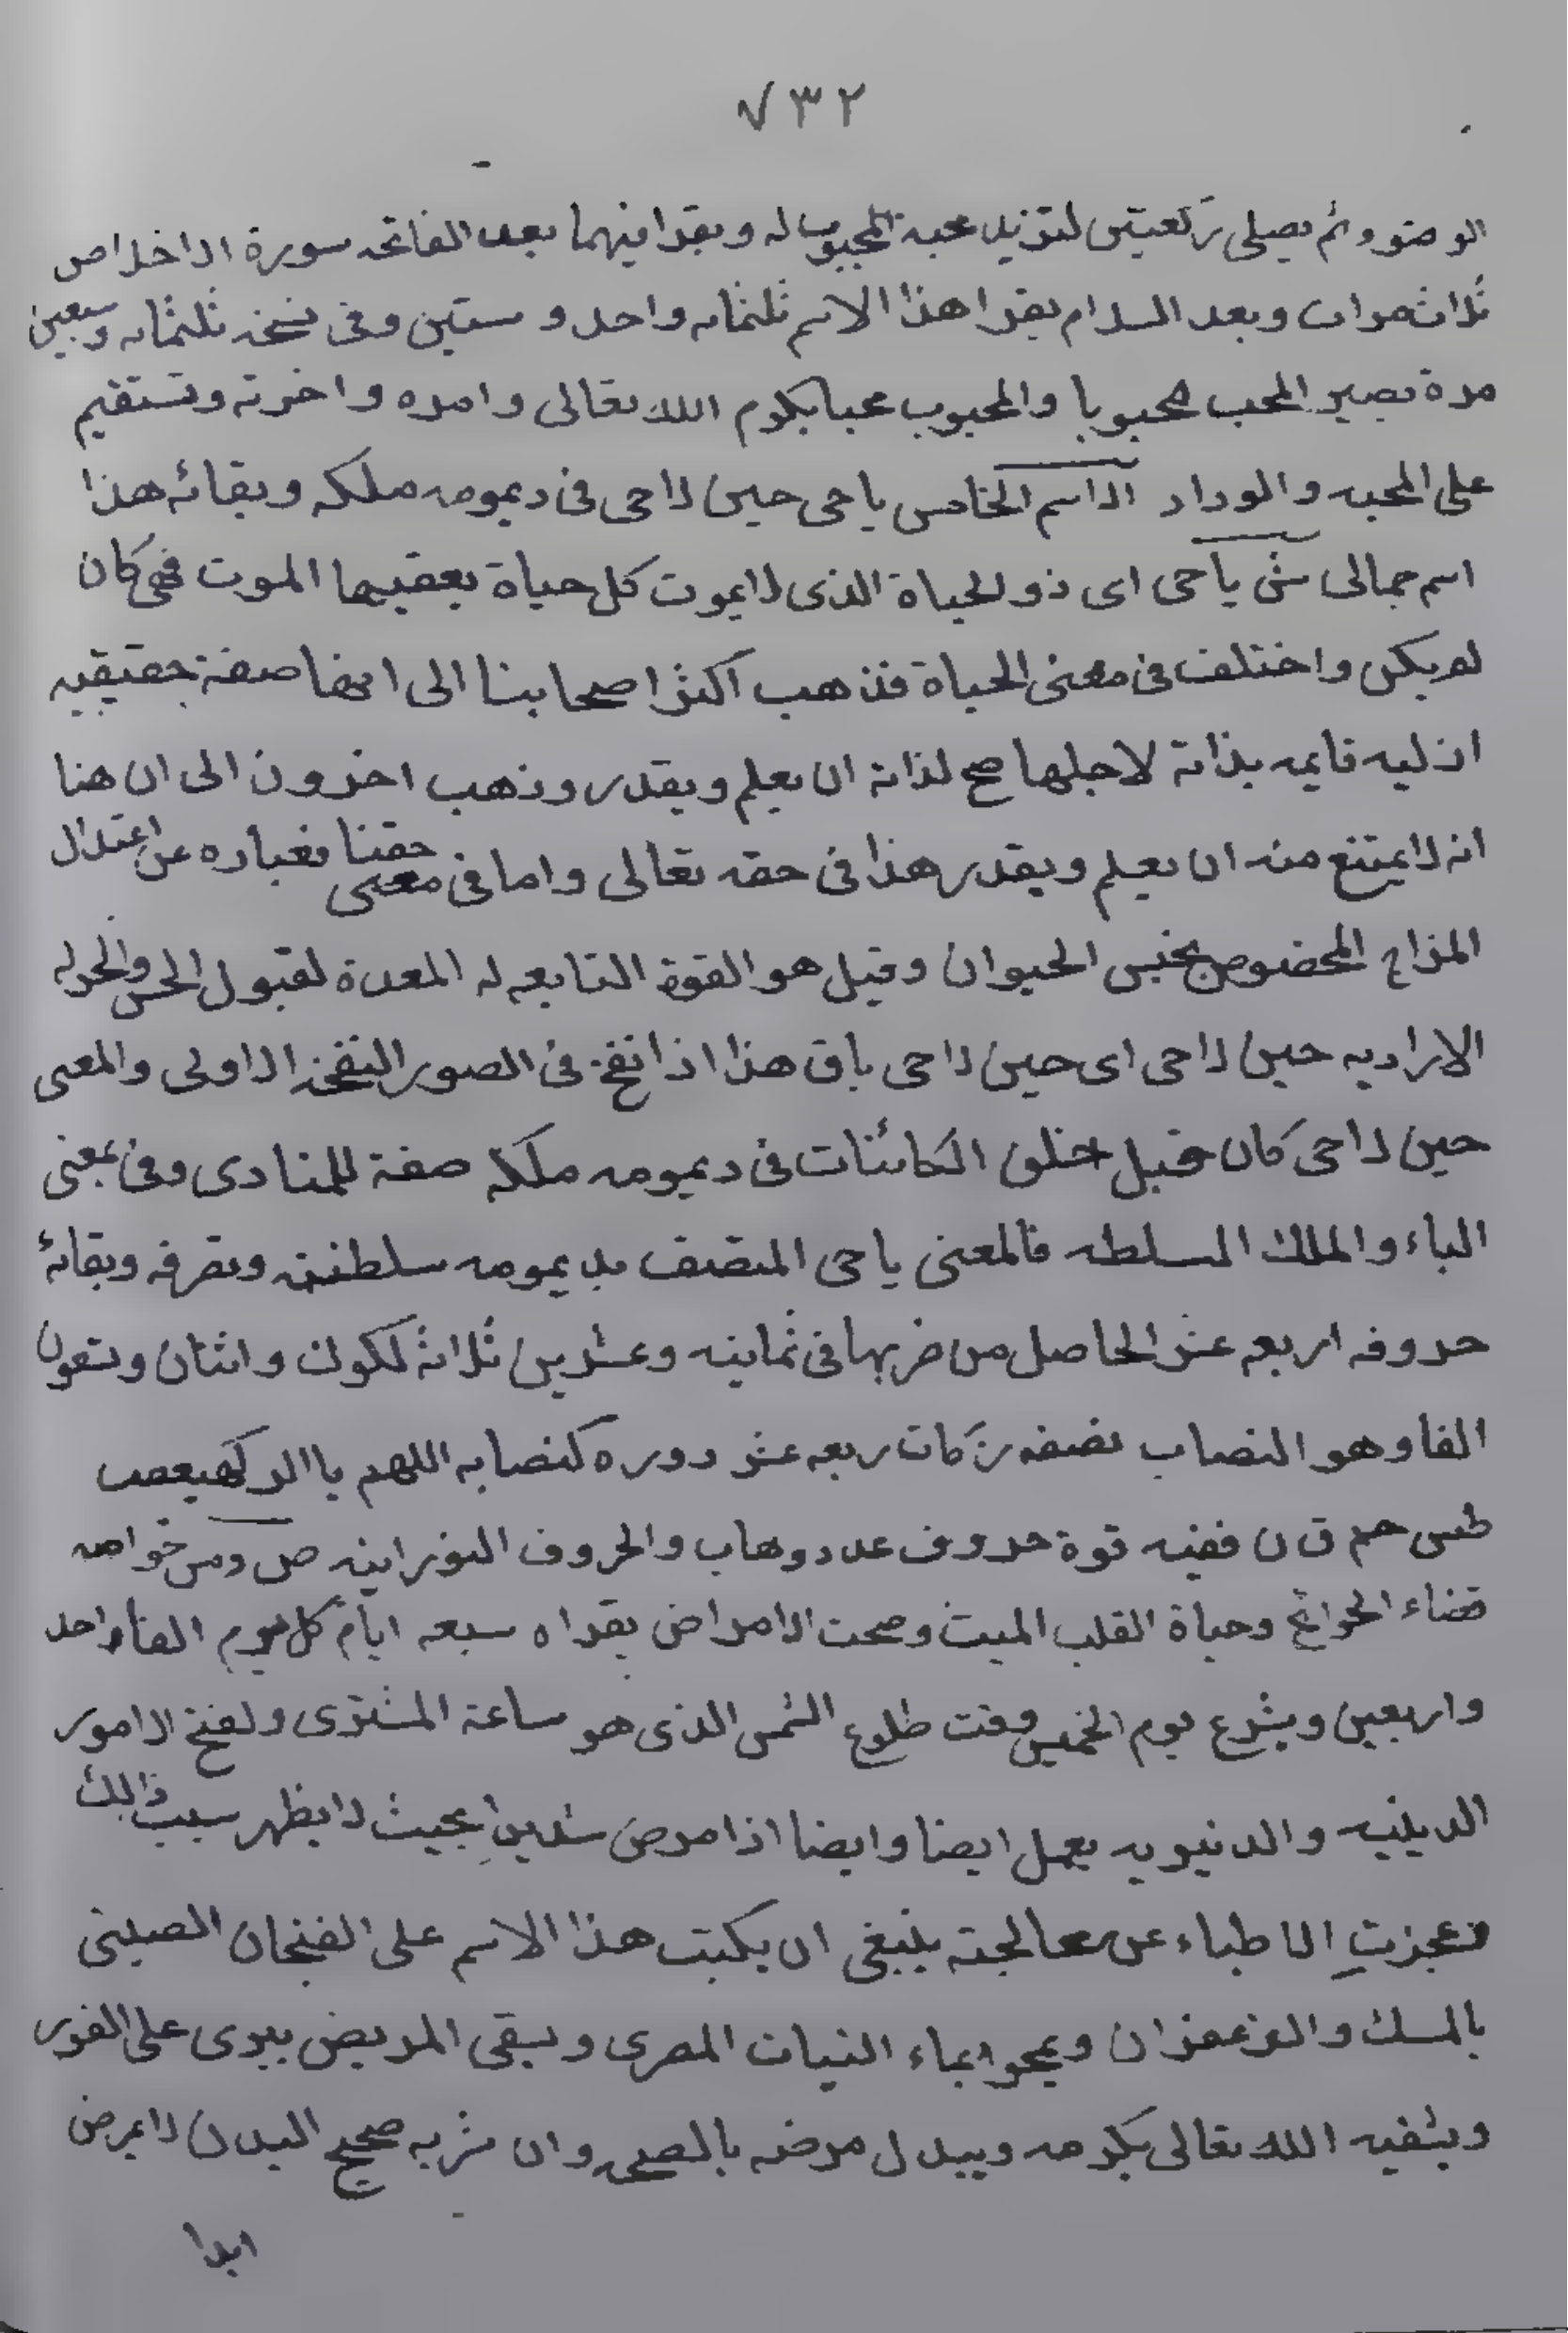 ٧٣٢
الوضوء ثم يصلى ركعتين لتزيد محبة المحبوب له ويقرا فيهما بعد الفاتحه سورة الاخلاص
ثلاث مرات وبعد السلام يقرا هذا الاسم ثلثمايه واحد وستين وفى نسخه ثلثمايه وسبعين
مرة يصير المحب محبوبا والمحبوب محبا بكرم الله تعالى وامره واخرته وتستقيم
على المحبه والوداد الاسم الخامس ياحى حين لاحى فى ديمومه ملكه وبقائه هذا
اسم جمالى ش ياحى اى ذو الحياة الذى لايموت كل حياة يعقبها الموت فهى كان
لم يكن واختلف فى معنى الحياة فذهب اكثر اصحابنا الى انها صفة حقيقيه
ازليه قايمه بذاته لاجلها صح لذاته ان يعلم ويقدر وذهب اخرون الى ان هنا
انه لايمتنع منه ان يعلم ويقدر هذا فى حقه تعالى واما فى معنى حقنا فعباره عن اعتدال
المزاج المخصوص بجنس الحيوان وقيل هو القوة التابعه له المعدة لقبول الحس والحركه
الاراديه حين لاحى اى حين لاحى باق هذا اذا نفخ فى الصور النفخه الاولى والمعنى
حين لاحى كان قبل خلق الكائنات فى ديمومه ملكه صفة للمنادى وفى بمعنى
الباء والملك السلطه فالمعنى ياحى المتصف بديمومه سلطنته وتصرفه وبقائه
حروفه اربعه عشر الحاصل من ضربها فى ثمانيه وعشرين ثلاثة لكوك واثنان وتسعون
الفا وهو النصاب نصفه زكات ربعه عشر دوره كنصابه اللهم يا الر كهيعص
طس حم ق ن ففيه قوة حروف عدد وهاب والحروف النورانيه ص ومن خواصه
قضاء الحوائج وحياة القلب الميت وصحت الامراض يقراه سبعه ايام كل يوم الفا واحد
واربعين ويشرع يوم الخميس وقت طلوع الشمس الذى هو ساعة المشترى ولفتح الامور
الدينيه والدنيويه يعمل ايضا وايضا اذا مرض شديدا بحيث لايظهر سبب ذالك
وعجزت الاطباء عن معالجته ينبغى ان يكتب هذا الاسم على الفنجان الصينى
بالمسك والزعفران ويمحو بماء النبات المصرى ويسقى المريض يبرى على الفور
ويشفيه الله تعالى بكرمه ويبدل مرضه بالصحه وان شربه صحيح البدن لايمرض
ابدا